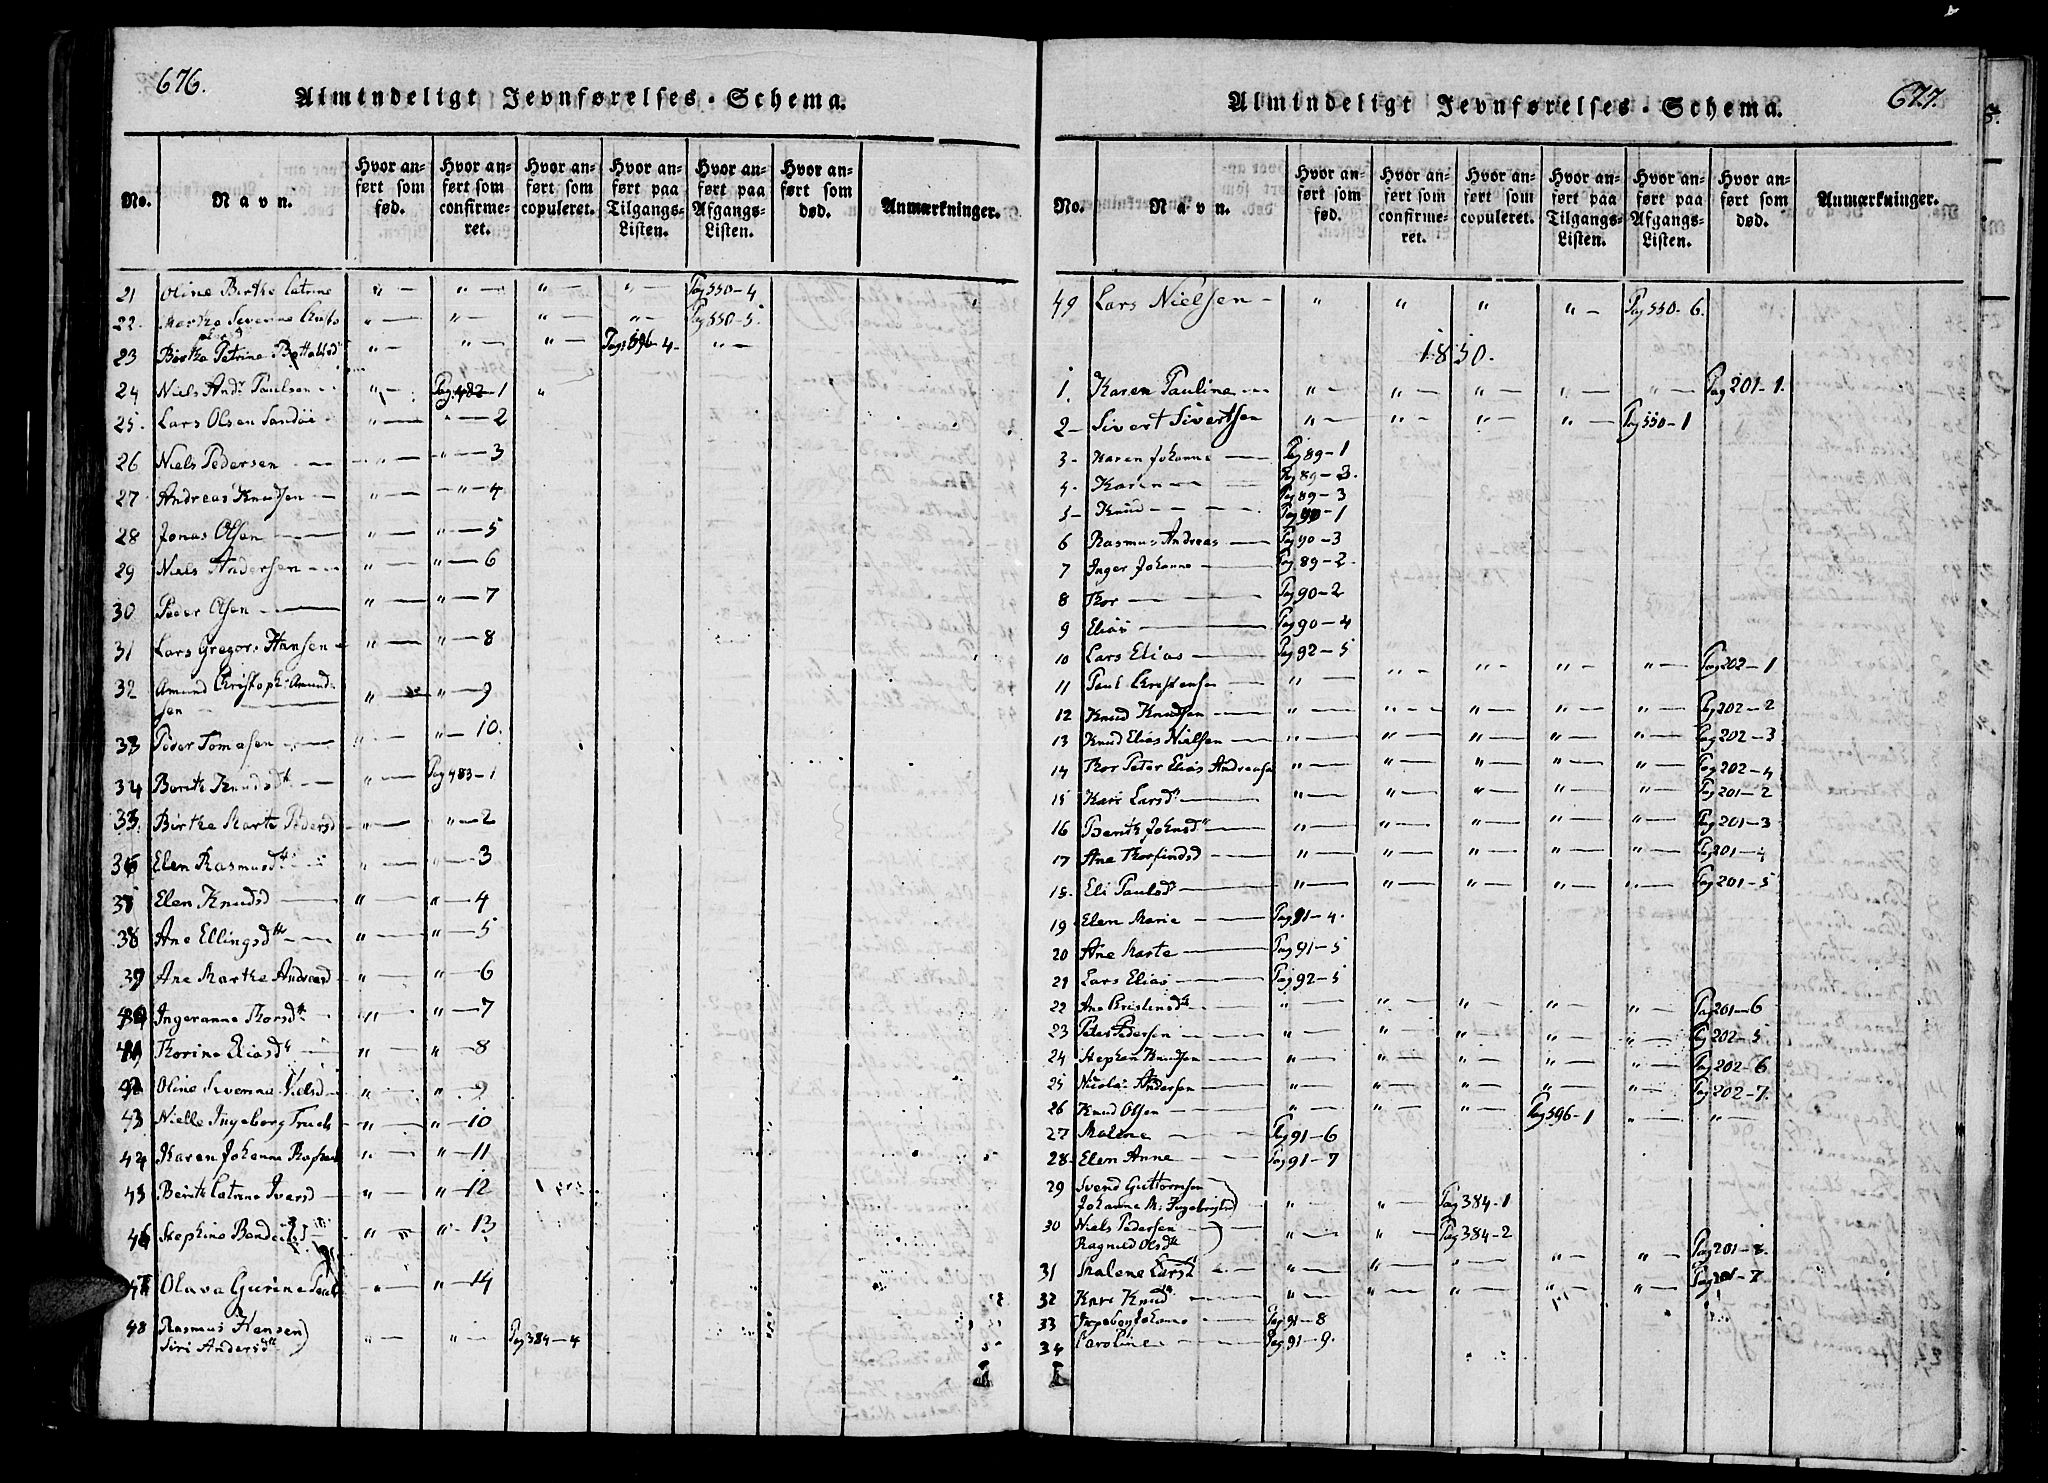 676.
Almindeligt Jevnførelses-Schema.
No. Navn. Hvor anført som fød. Hvor anført som confirmeret. Hvor anført som copuleret. Hvor anført paa Tilgangs-Listen. Hvor anført paa Afgangs-Listen. Hvor anført som død. Anmærkninger.
21 Oline Birthe Catrine " — " — " — " — Pag 550-4
22. Marthe Severine " — " — " — " — Pag 550-5.
23 Birthe Petrine " — " — " — Pag 596-4- " —
24 Niels Andr Paulsen " — Pag 482-1 "
25. Lars Olsen Sandøe " — " — 2
26 Niels Pedersen " — " — 3
27 Andreas Knudsen " — " — 4
28 Jonas Olsen " — " — 5
29 Niels Andersen " — " — 6
30 Peder Olsen " — " — 7
31 Lars Gregors Hansen " — " — 8
32 Amund Christoph Amund-
sen " — " — 9
33 Peder Tomasen " — " — 10.
34 Berith Knudsd " — Pag 483-1
35. Birthe Marte Pedersd " — " — 2
36 Elen Rasmusd " — " — 3
37 Elen Knudsd " — " — 4
38 Ane Ellingsd " — " — 5
39 Ane Marthe Andreasd " — " — 6
40 Ingeranne Thorsd " — " — 7
41 Thorine Eliasd " — " — 8
42 Oline Severine Nielsd " — " — 9
43 Nielle Ingeborg Truels " — " — 10
44 Karen Johanne " — " — 11
45 Berith Catrine Iversd " — " — 12
46 Stephine " — " — 13
47 Olava Gurine " — " — 14
48 Rasmus Hansen)
Siri Andersd " — " — Pag 384-4
677.
Almindeligt Jevnførelses-Schema.
No. Navn. Hvor anført som fød. Hvor anført som confirmeret. Hvor anført som copuleret. Hvor anført paa Tilgangs-Listen. Hvor anført paa Afgangs-Listen. Hvor anført som død. Anmærkninger.
49 Lars Nielsen - " " " " — Pag 550-6.
1850.
1. Karen Pauline " — " — " — " — " — Pag 201-1.
2- Sivert Sivertsen " — " — " — " — Pag 550-1
3- Karen Johanne Pag 89-1
4. Karen Pag 89-2.
Pag 89-3
5- Knud Pag 90-1
6 Rasmus Andreas Pag 90-3
7 Inger Johanne Pag 89-2.
8 Thor Pag 90-2
9 Elias Pag 90-4
10 Lars Elias Pag 92-5
11 Paul Christensen " — " — " — " — " — Pag 202-1
12 Knud Knudsen " — " — " — " — " — Pag 202-2
13 Knud Elias Nielsen " — " — " — " — " — Pag 202-3
14 Thor Peter Elias Andreasen " — " — " — " — " — Pag 202-4
15 Kari Larsd " — " — " — " — " — Pag 201-2
16 Berith Johnsd " — " — " — " — " — Pag 201-3
17 Ane Thorfindsd " — " — " — " — " — Pag 201-4
18. Eli Paulsd " — " — " — " — " — Pag 201-5
19 Elen Marie Pag 91-4.
20 Ane Marte Pag 91-5
21 Lars Elias Pag 92-5
22 Ane Cristensd " — " — " — " — " — Pag 201-6
23 Peter Pedersen " — " — " — " — " — Pag 202-5
24 Stephen Knudsen " — " — " — " — " — Pag 202-6
25 Nicolai Andersen " — " — " — " — " — Pag 202-7.
26 Knud Olsen " — " — " — Pag 596-1 " — " —
27 Malene Pag 91-6
28- Elen Anne Pag 91-7
29 Svend Guttormsen
Johanne M. Ingebrigtsd) " — " — Pag 384-1
30 Niels Pedersen
Ragnild Olsd) " — " — Pag 384-2
31 Malene Larsd " — " — " — " — " — Pag 201-8.
32 Kari Knud " — " — " — " — " — Pag 201-7
33 Ingeborg Johanne Pag 91-8
34 Caroline Pag 91-9.